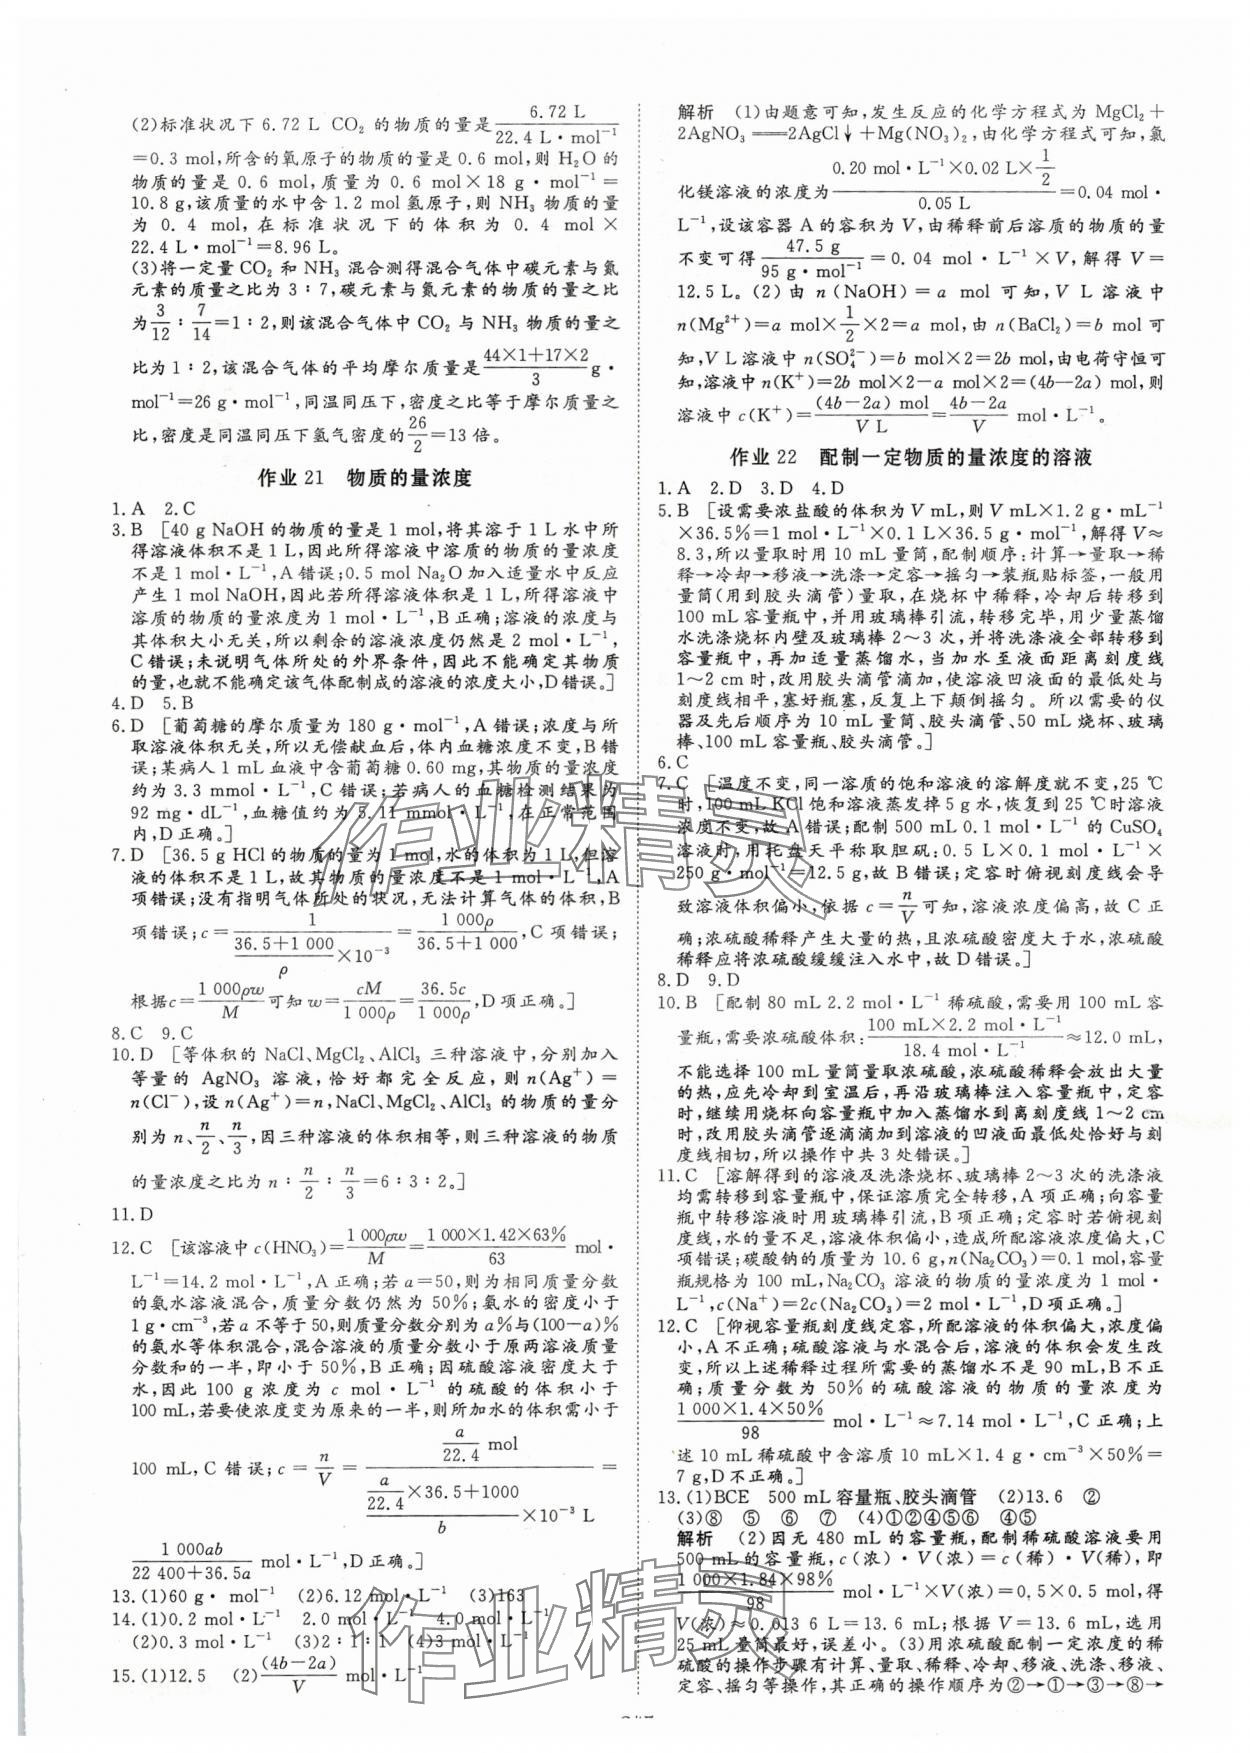 (2)标准状况下 6.72 L CO₂ 的物质的量是 6.72 L/22.4 L·mol⁻¹
=0.3 mol,所含的氧原子的物质的量是 0.6 mol,则 H₂O 的
物质的量是 0.6 mol,质量为 0.6 mol×18 g·mol⁻¹=
10.8 g,该质量的水中含 1.2 mol 氢原子,则 NH₃ 物质的量为
0.4 mol,在标准状况下的体积为 0.4 mol×
22.4 L·mol⁻¹=8.96 L。
(3)将一定量 CO₂ 和 NH₃ 混合测得混合气体中碳元素与氮
元素的质量之比为 3∶7,碳元素与氮元素的物质的量之比
为 3/12∶7/14=1∶2,则该混合气体中 CO₂ 与 NH₃ 物质的量之
比为 1∶2,该混合气体的平均摩尔质量是 (44×1+17×2)/3 g·
mol⁻¹=26 g·mol⁻¹,同温同压下,密度之比等于摩尔质量之
比,密度是同温同压下氢气密度的 26/2=13 倍。
作业 21 物质的量浓度
1.A 2.C
3.B [40 g NaOH 的物质的量是 1 mol,将其溶于 1 L 水中所
得溶液体积不是 1 L,因此所得溶液中溶质的物质的量浓度
不是 1 mol·L⁻¹,A 错误;0.5 mol Na₂O 加入适量水中反应
产生 1 mol NaOH,因此若所得溶液体积是 1 L,所得溶液中
溶质的物质的量浓度为 1 mol·L⁻¹,B 正确;溶液的浓度与
其体积大小无关,所以剩余的溶液浓度仍然是 2 mol·L⁻¹,
C 错误;未说明气体所处的外界条件,因此不能确定其物质
的量,也就不能确定该气体配制成的溶液的浓度大小,D 错误。]
4.D 5.B
6.D [葡萄糖的摩尔质量为 180 g·mol⁻¹,A 错误;浓度与所
取溶液体积无关,所以无偿献血后,体内血糖浓度不变,B 错
误;某病人 1 mL 血液中含葡萄糖 0.60 mg,其物质的量浓度
约为 3.3 mmol·L⁻¹,C 错误;若病人的血糖检测结果为
92 mg·dL⁻¹,血糖值约为 5.11 mmol·L⁻¹,在正常范围
内,D 正确。]
7.D [36.5 g HCl 的物质的量为 1 mol,水的体积为 1 L,但溶
液的体积不是 1 L,故其物质的量浓度不是 1 mol·L⁻¹,A
项错误;没有指明气体所处的状况,无法计算气体的体积,B
项错误;c=1/((36.5+1 000)/ρ×10⁻³)=1 000ρ/(36.5+1 000),C 项错误;
根据 c=1 000ρw/M 可知 w=cM/1 000ρ=36.5c/1 000ρ,D 项正确。]
8.C 9.C
10.D [等体积的 NaCl、MgCl₂、AlCl₃ 三种溶液中,分别加入
等量的 AgNO₃ 溶液,恰好都完全反应,则 n(Ag⁺)=
n(Cl⁻),设 n(Ag⁺)=n,NaCl、MgCl₂、AlCl₃ 的物质的量分
别为 n、n/2、n/3,因三种溶液的体积相等,则三种溶液的物质
的量浓度之比为 n∶n/2∶n/3=6∶3∶2。]
11.D
12.C [该溶液中 c(HNO₃)=1 000ρw/M=(1 000×1.42×63%)/63 mol·
L⁻¹=14.2 mol·L⁻¹,A 正确;若 a=50,则为相同质量分数
的氨水溶液混合,质量分数仍然为 50%;氨水的密度小于
1 g·cm⁻³,若 a 不等于 50,则质量分数分别为 a%与(100-a)%
的氨水等体积混合,混合溶液的质量分数小于原两溶液质量
分数和的一半,即小于 50%,B 正确;因硫酸溶液密度大于
水,因此 100 g 浓度为 c mol·L⁻¹ 的硫酸的体积小于
100 mL,若要使浓度变为原来的一半,则所加水的体积需小于
100 mL,C 错误;c=n/V=(a/22.4 mol)/((a/22.4×36.5+1000)/b×10⁻³ L)=
1 000ab/(22 400+36.5a) mol·L⁻¹,D 正确。]
13.(1)60 g·mol⁻¹ (2)6.12 mol·L⁻¹ (3)163
14.(1)0.2 mol·L⁻¹ 2.0 mol·L⁻¹ 4.0 mol·L⁻¹
(2)0.3 mol·L⁻¹ (3)2∶1∶1 (4)3 mol·L⁻¹
15.(1)12.5 (2)(4b-2a)/V mol·L⁻¹
解析 (1)由题意可知,发生反应的化学方程式为 MgCl₂+
2AgNO₃══2AgCl↓+Mg(NO₃)₂,由化学方程式可知,氯
化镁溶液的浓度为 (0.20 mol·L⁻¹×0.02 L×1/2)/0.05 L=0.04 mol·
L⁻¹,设该容器 A 的容积为 V,由稀释前后溶质的物质的量
不变可得 47.5 g/95 g·mol⁻¹=0.04 mol·L⁻¹×V,解得 V=
12.5 L。(2)由 n(NaOH)=a mol 可知,V L 溶液中
n(Mg²⁺)=a mol×1/2×2=a mol,由 n(BaCl₂)=b mol 可
知,V L 溶液中 n(SO₄²⁻)=b mol×2=2b mol,由电荷守恒可
知,溶液中 n(K⁺)=2b mol×2-a mol×2=(4b-2a) mol,则
溶液中 c(K⁺)=(4b-2a) mol/V L=(4b-2a)/V mol·L⁻¹。
作业 22 配制一定物质的量浓度的溶液
1.A 2.D 3.D 4.D
5.B [设需要浓盐酸的体积为 V mL,则 V mL×1.2 g·mL⁻¹
×36.5%=1 mol·L⁻¹×0.1 L×36.5 g·mol⁻¹,解得 V≈
8.3,所以量取时用 10 mL 量筒,配制顺序:计算→量取→稀
释→冷却→移液→洗涤→定容→摇匀→装瓶贴标签,一般用
量筒(用到胶头滴管)量取,在烧杯中稀释,冷却后转移到
100 mL 容量瓶中,并用玻璃棒引流,转移完毕,用少量蒸馏
水洗涤烧杯内壁及玻璃棒 2~3 次,并将洗涤液全部转移到
容量瓶中,再加适量蒸馏水,当加水至液面距离刻度线
1~2 cm 时,改用胶头滴管滴加,使溶液凹液面的最低处与
刻度线相平,塞好瓶塞,反复上下颠倒摇匀。所以需要的仪
器及先后顺序为 10 mL 量筒、胶头滴管、50 mL 烧杯、玻璃
棒、100 mL 容量瓶、胶头滴管。]
6.C
7.C [温度不变,同一溶质的饱和溶液的溶解度就不变,25 ℃
时,100 mL KCl 饱和溶液蒸发掉 5 g 水,恢复到 25 ℃时溶液
浓度不变,故 A 错误;配制 500 mL 0.1 mol·L⁻¹ 的 CuSO₄
溶液时,用托盘天平称取胆矾:0.5 L×0.1 mol·L⁻¹×
250 g·mol⁻¹=12.5 g,故 B 错误;定容时俯视刻度线会导
致溶液体积偏小,依据 c=n/V 可知,溶液浓度偏高,故 C 正
确;浓硫酸稀释产生大量的热,且浓硫酸密度大于水,浓硫酸
稀释应将浓硫酸缓缓注入水中,故 D 错误。]
8.D 9.D
10.B [配制 80 mL 2.2 mol·L⁻¹ 稀硫酸,需要用 100 mL 容
量瓶,需要浓硫酸体积:(100 mL×2.2 mol·L⁻¹)/18.4 mol·L⁻¹≈12.0 mL,
不能选择 100 mL 量筒量取浓硫酸,浓硫酸稀释会放出大量
的热,应先冷却到室温后,再沿玻璃棒注入容量瓶中,定容
时,继续用烧杯向容量瓶中加入蒸馏水到离刻度线 1~2 cm
时,改用胶头滴管逐滴滴加到溶液的凹液面最低处恰好与刻
度线相切,所以操作中共 3 处错误。]
11.C [溶解得到的溶液及洗涤烧杯、玻璃棒 2~3 次的洗涤液
均需转移到容量瓶中,保证溶质完全转移,A 项正确;向容量
瓶中转移溶液时用玻璃棒引流,B 项正确;定容时若俯视刻
度线,水的量不足,溶液体积偏小,造成所配溶液浓度偏大,C
项错误;碳酸钠的质量为 10.6 g,n(Na₂CO₃)=0.1 mol,容量
瓶规格为 100 mL,Na₂CO₃ 溶液的物质的量浓度为 1 mol·
L⁻¹,c(Na⁺)=2c(Na₂CO₃)=2 mol·L⁻¹,D 项正确。]
12.C [仰视容量瓶刻度线定容,所配溶液的体积偏大,浓度偏
小,A 不正确;硫酸溶液与水混合后,溶液的体积会发生改
变,所以上述稀释过程所需要的蒸馏水不是 90 mL,B 不正
确;质量分数为 50%的硫酸溶液的物质的量浓度为
(1 000×1.4×50%)/98 mol·L⁻¹≈7.14 mol·L⁻¹,C 正确;上
述 10 mL 稀硫酸中含溶质 10 mL×1.4 g·cm⁻³×50%=
7 g,D 不正确。]
13.(1)BCE 500 mL 容量瓶、胶头滴管 (2)13.6 ②
(3)⑧ ⑤ ⑥ ⑦ (4)①②④⑤⑥ ④⑤
解析 (2)因无 480 mL 的容量瓶,配制稀硫酸溶液要用
500 mL 的容量瓶,c(浓)·V(浓)=c(稀)·V(稀),即
(1 000×1.84×98%)/98 mol·L⁻¹×V(浓)=0.5×0.5 mol,得
V(浓)≈0.013 6 L=13.6 mL;根据 V=13.6 mL,选用
25 mL 量筒最好,误差小。(3)用浓硫酸配制一定浓度的稀
硫酸的操作步骤有计算、量取、稀释、冷却、移液、洗涤、移液、
定容、摇匀等操作,其正确的操作顺序为②→①→③→⑧→
作业精灵
作业精灵